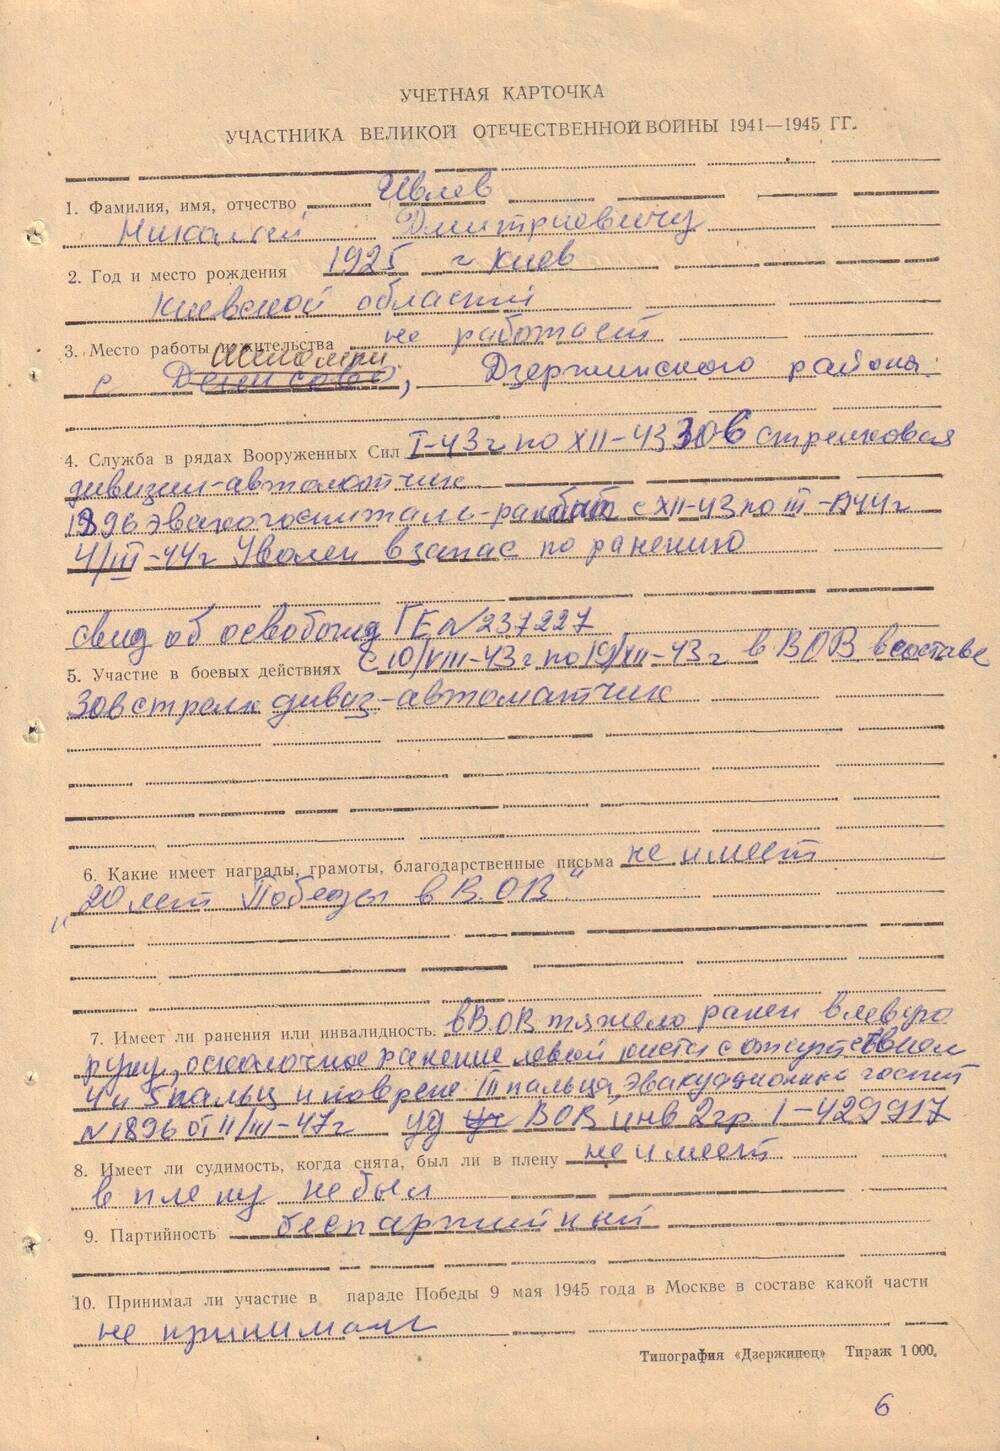 УЧЕТНАЯ КАРТОЧКА
УЧАСТНИКА ВЕЛИКОЙ ОТЕЧЕСТВЕННОЙ ВОЙНЫ 1941—1945 ГГ.
1. Фамилия, имя, отчество Ивлев
Николай Дмитриевичу
2. Год и место рождения 1925 г Киев
Киевской области
3. Место работы жительства не работает
с Денисово, Дзержинского района.
4. Служба в рядах Вооруженных Сил I-43 г по XII-43 308 стрелковая
дивизии-автоматчик
1896 эвакогоспиталь- с XII-43 по III-1944 г
4/III-44 г Уволен в запас по ранению
свид об освобожд ГЕ N 237227
5. Участие в боевых действиях с 10/VIII-43 г по 19/XII-43 г в ВОВ в составе
308 стрелк дивиз-автоматчик
6. Какие имеет награды, грамоты, благодарственные письма не имеет
„20 лет Победы в В.ОВ"
7. Имеет ли ранения или инвалидность в В.ОВ тяжело ранен в левую
руку, осколочное ранение левой кисти с отсутствием
4 и 5 пальц и поврежд III пальца, Эвакуационный госпит
N 1896 от 11/III-47 г уд ВОВ инв 2 гр 1-429917
8. Имеет ли судимость, когда снята, был ли в плену не имеет
в плену не был
9. Партийность беспартийный
10. Принимал ли участие в параде Победы 9 мая 1945 года в Москве в составе какой части
не принимал
Типография «Дзержинец» Тираж 1 000.
6